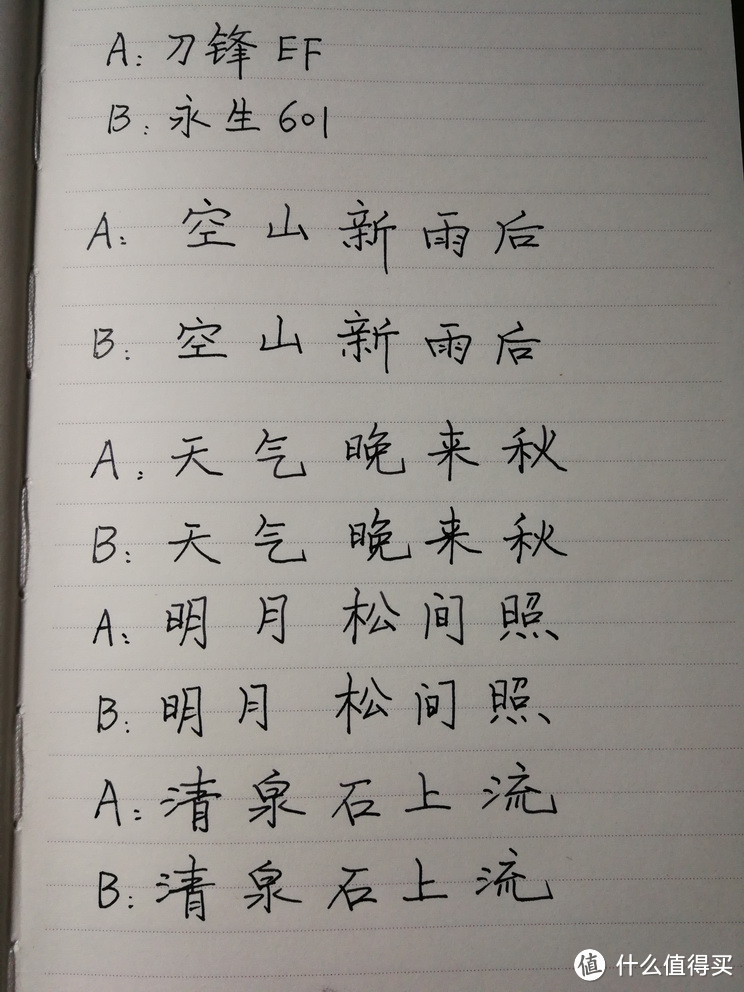 A: 刀锋 EF
B: 永生 601
A: 空山新雨后
B: 空山新雨后
A: 天气晚来秋
B: 天气晚来秋
A: 明月松间照
B: 明月松间照
A: 清泉石上流
B: 清泉石上流
值 什么值得买